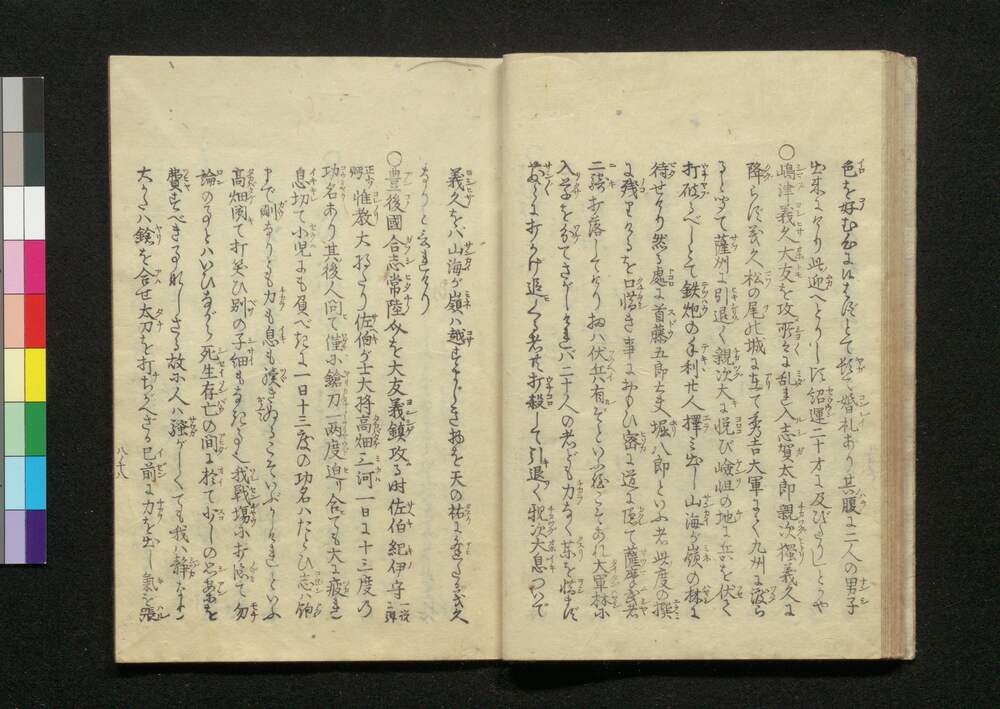 色を好むにはあらずとて終て婚礼あり其腹に二人の男子
出来にけり此迎へとりし時紹運二十才に及びたりしとうや
○嶋津義久大友を攻所々に乱れ入志賀太郎親次獨義久に
降らず義久松の尾の城に在て秀吉大軍にて九州に渡ら
ると聞て薩州に引退く親次大に悦び嶮岨の地に兵を伏て
打破るべしとて鉄炮の手利廿人擇み出し山海が嶺の林に
待せけり然る處に首藤五郎大夫堀八郎といふ者此度の撰
に残りけるを口惜き事におもひ密に道に隠て薩摩武者
二騎打落してけり扨ハ伏兵有ぞといふ程こそあれ大軍林に
入草を分てさがしければ二十人の者ども力なく命を惜まず
散々に打かけ追くる者共打殺して引退く親次大息ついて
義久をバ山海が嶺ハ越すまじき物を天の祐に逢たる義久
なりと云れけり
○豊後國合志常陸介を大友義鎮攻る時佐伯紀伊守一説
惟教大将たり佐伯が士大将高畑三河一日に十三度の
功名あり其後人問て僅に鎗刀一両度迫り合ても大に疲れ
息切て小児にも負べきに一日十三度の功名ハたとひ志ハ飽
まで剛なりとも力も息も續きぬることこそいぶかしけれといふ
高畑聞て打笑ひ別の子細もなきことなり我戦場に打臨て勿
論の事とハいひながら死生存亡の間に於て少しの思あるを
費すべきことなしさる故に人ハ騒がしくても我ハ静なり
大かたハ鎗を合せ太刀を打ちがへざる已前に力を出し氣を張
八ノ十八